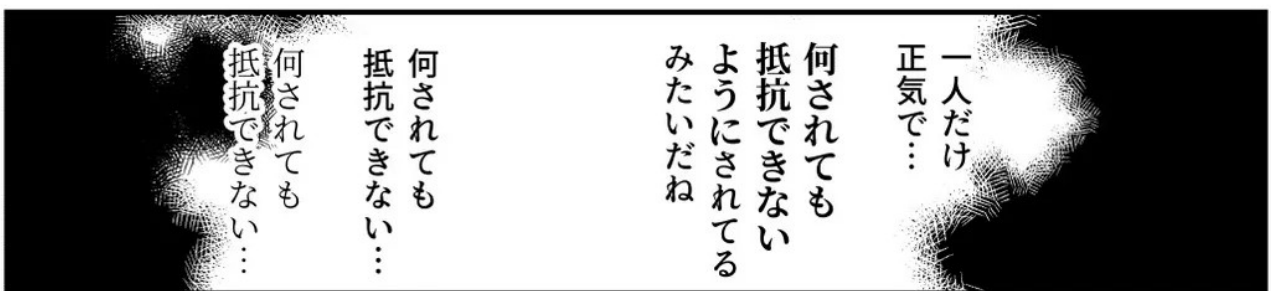 一人だけ
正気で…
何されても
抵抗できない
ようにされてる
みたいだね
何されても
抵抗できない…
何されても
抵抗できない…